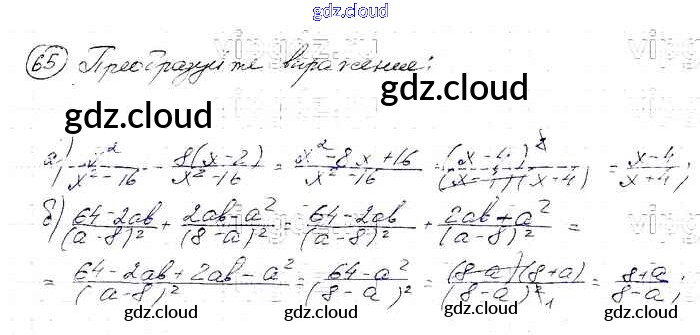 gdz.cloud
65 Преобразуйте выражение:
gdz.cloud gdz.cloud
а) x²/(x²-16) - 8(x-2)/(x²-16) = (x²-8x+16)/(x²-16) = (x-4)²/((x-4)(x+4)) = (x-4)/(x+4);
б) (64-2ab)/(a-8)² + (2ab-a²)/(8-a)² = (64-2ab)/(a-8)² + (2ab+a²)/(a-8)² =
gdz.cloud gdz.cloud
= (64-2ab+2ab-a²)/(a-8)² = (64-a²)/(8-a)² = (8-a)(8+a)/(8-a)² = (8+a)/(8-a);
gdz.cloud gdz.cloud gdz.cloud